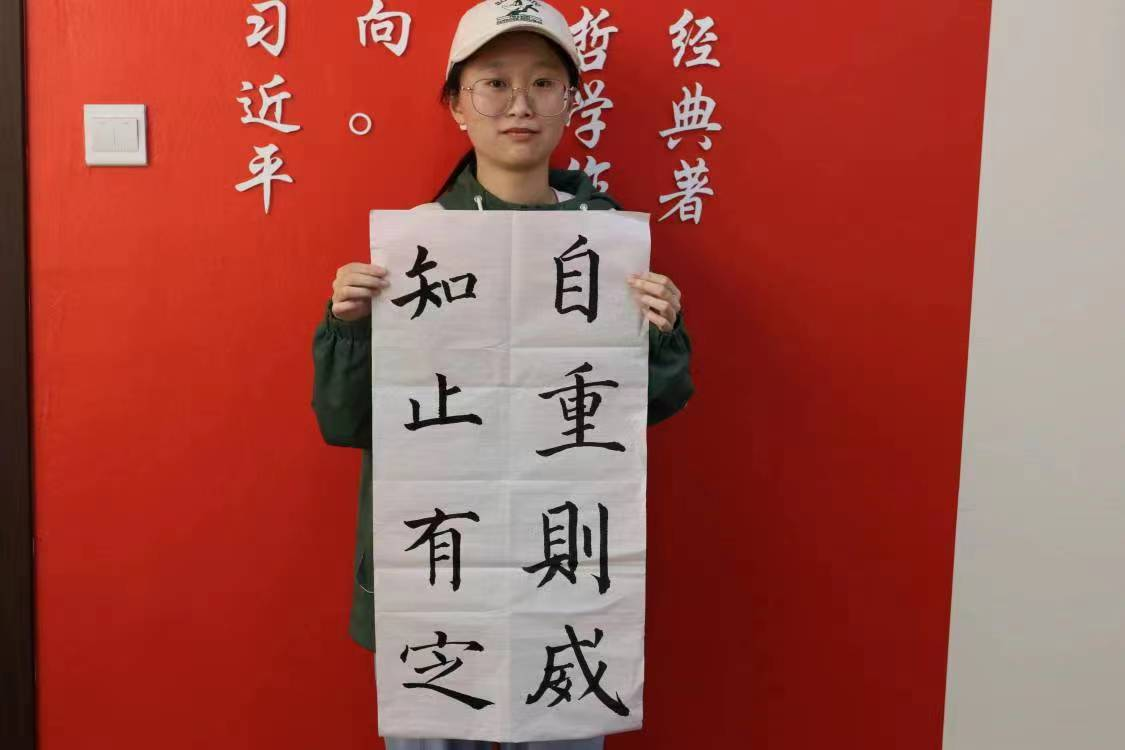 经典著
哲学
向。
习近平
自重則威
知止有定